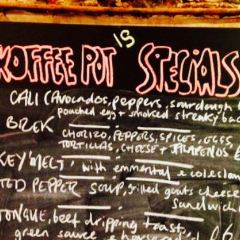 KOFFEE POT IS SPECIALS
CALI (Avocados, peppers, sourdough
poached egg + smoked streaky ba
BREK CHORIZO, PEPPERS, SPICES, EGGS
TORTILLAS, CHEESE + JALAPENOS
KEY MELT, with emmental + coleslaw
PEPPER SOUP, grilled goats cheese
sandwich
TONGUE, beef dripping toast,
green sauce